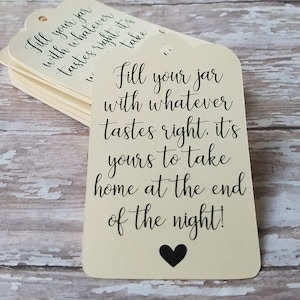 Fill your jar
with whatever
tastes right, it's
yours to take
Fill your jar
with whatever
tastes right, it's
yours to take
home at the end
of the night!